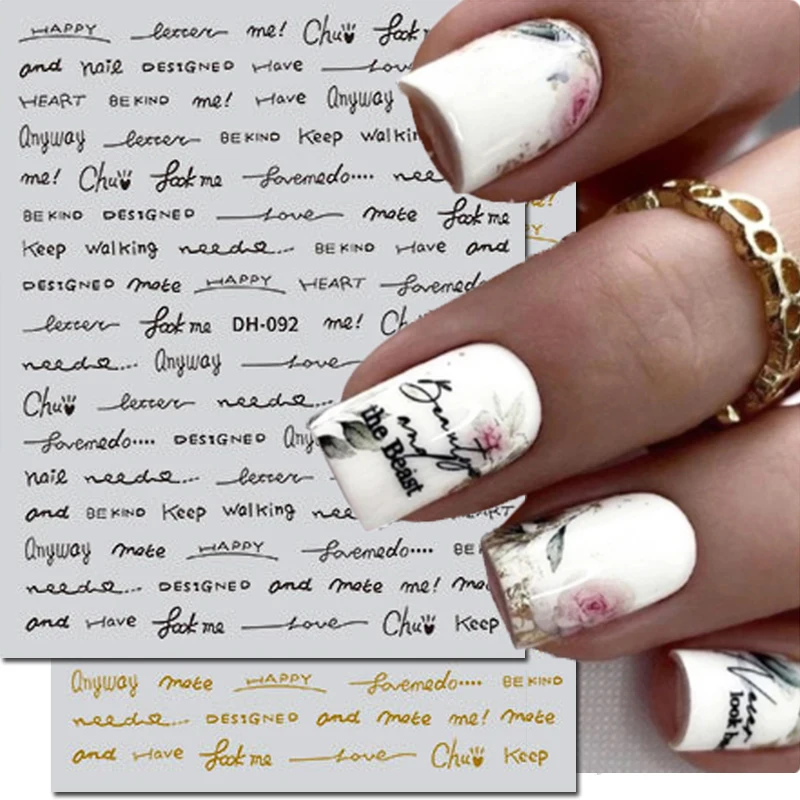 HAPPY letter me! Chu look
and nail DESIGNED Have Love
HEART BE KIND me! Have Anyway
Anyway letter BE KIND Keep walkin
me! Chu look me Lovemedo.... nee
BE KIND DESIGNED Love mate look me
Keep walking need... BE KIND Have and
DESIGNED mate HAPPY HEART Lovemedo
letter look me DH-092 me! Ch
need... Anyway Love
Chu letter need...
Lovemedo.... DESIGNED Any
nail need... letter
and BE KIND Keep walking nee
Anyway mate HAPPY Lovemedo.... BE
need... DESIGNED and mate me! ma
and Have look me Love Chu Keep
Anyway mate HAPPY Lovemedo.... BE KIND
need... DESIGNED and mate me! mate
and Have look me Love Chu Keep
Beauty
and
the Beast
Never
look ba